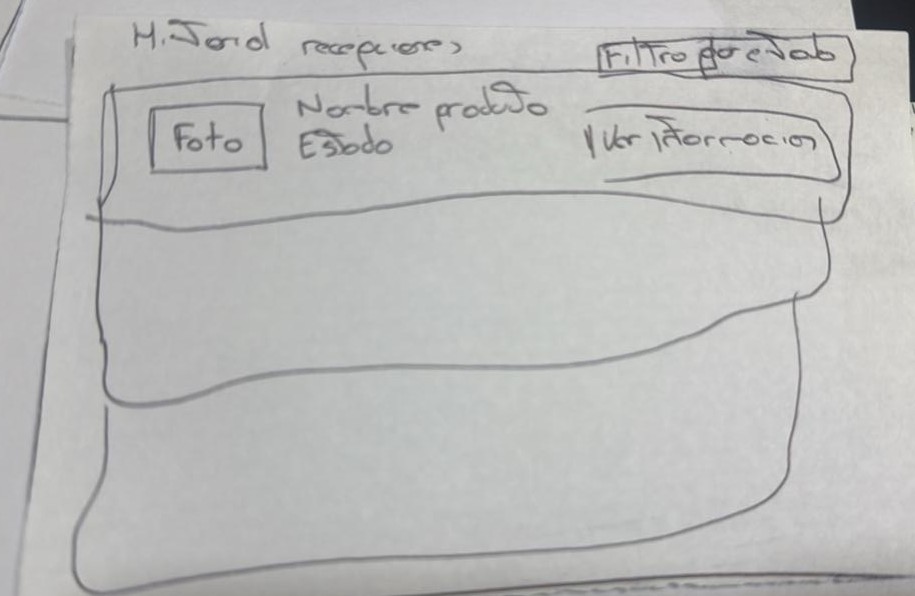 Historial recepciones
Filtro por estado
Foto
Nombre producto
Estado
Ver informacion